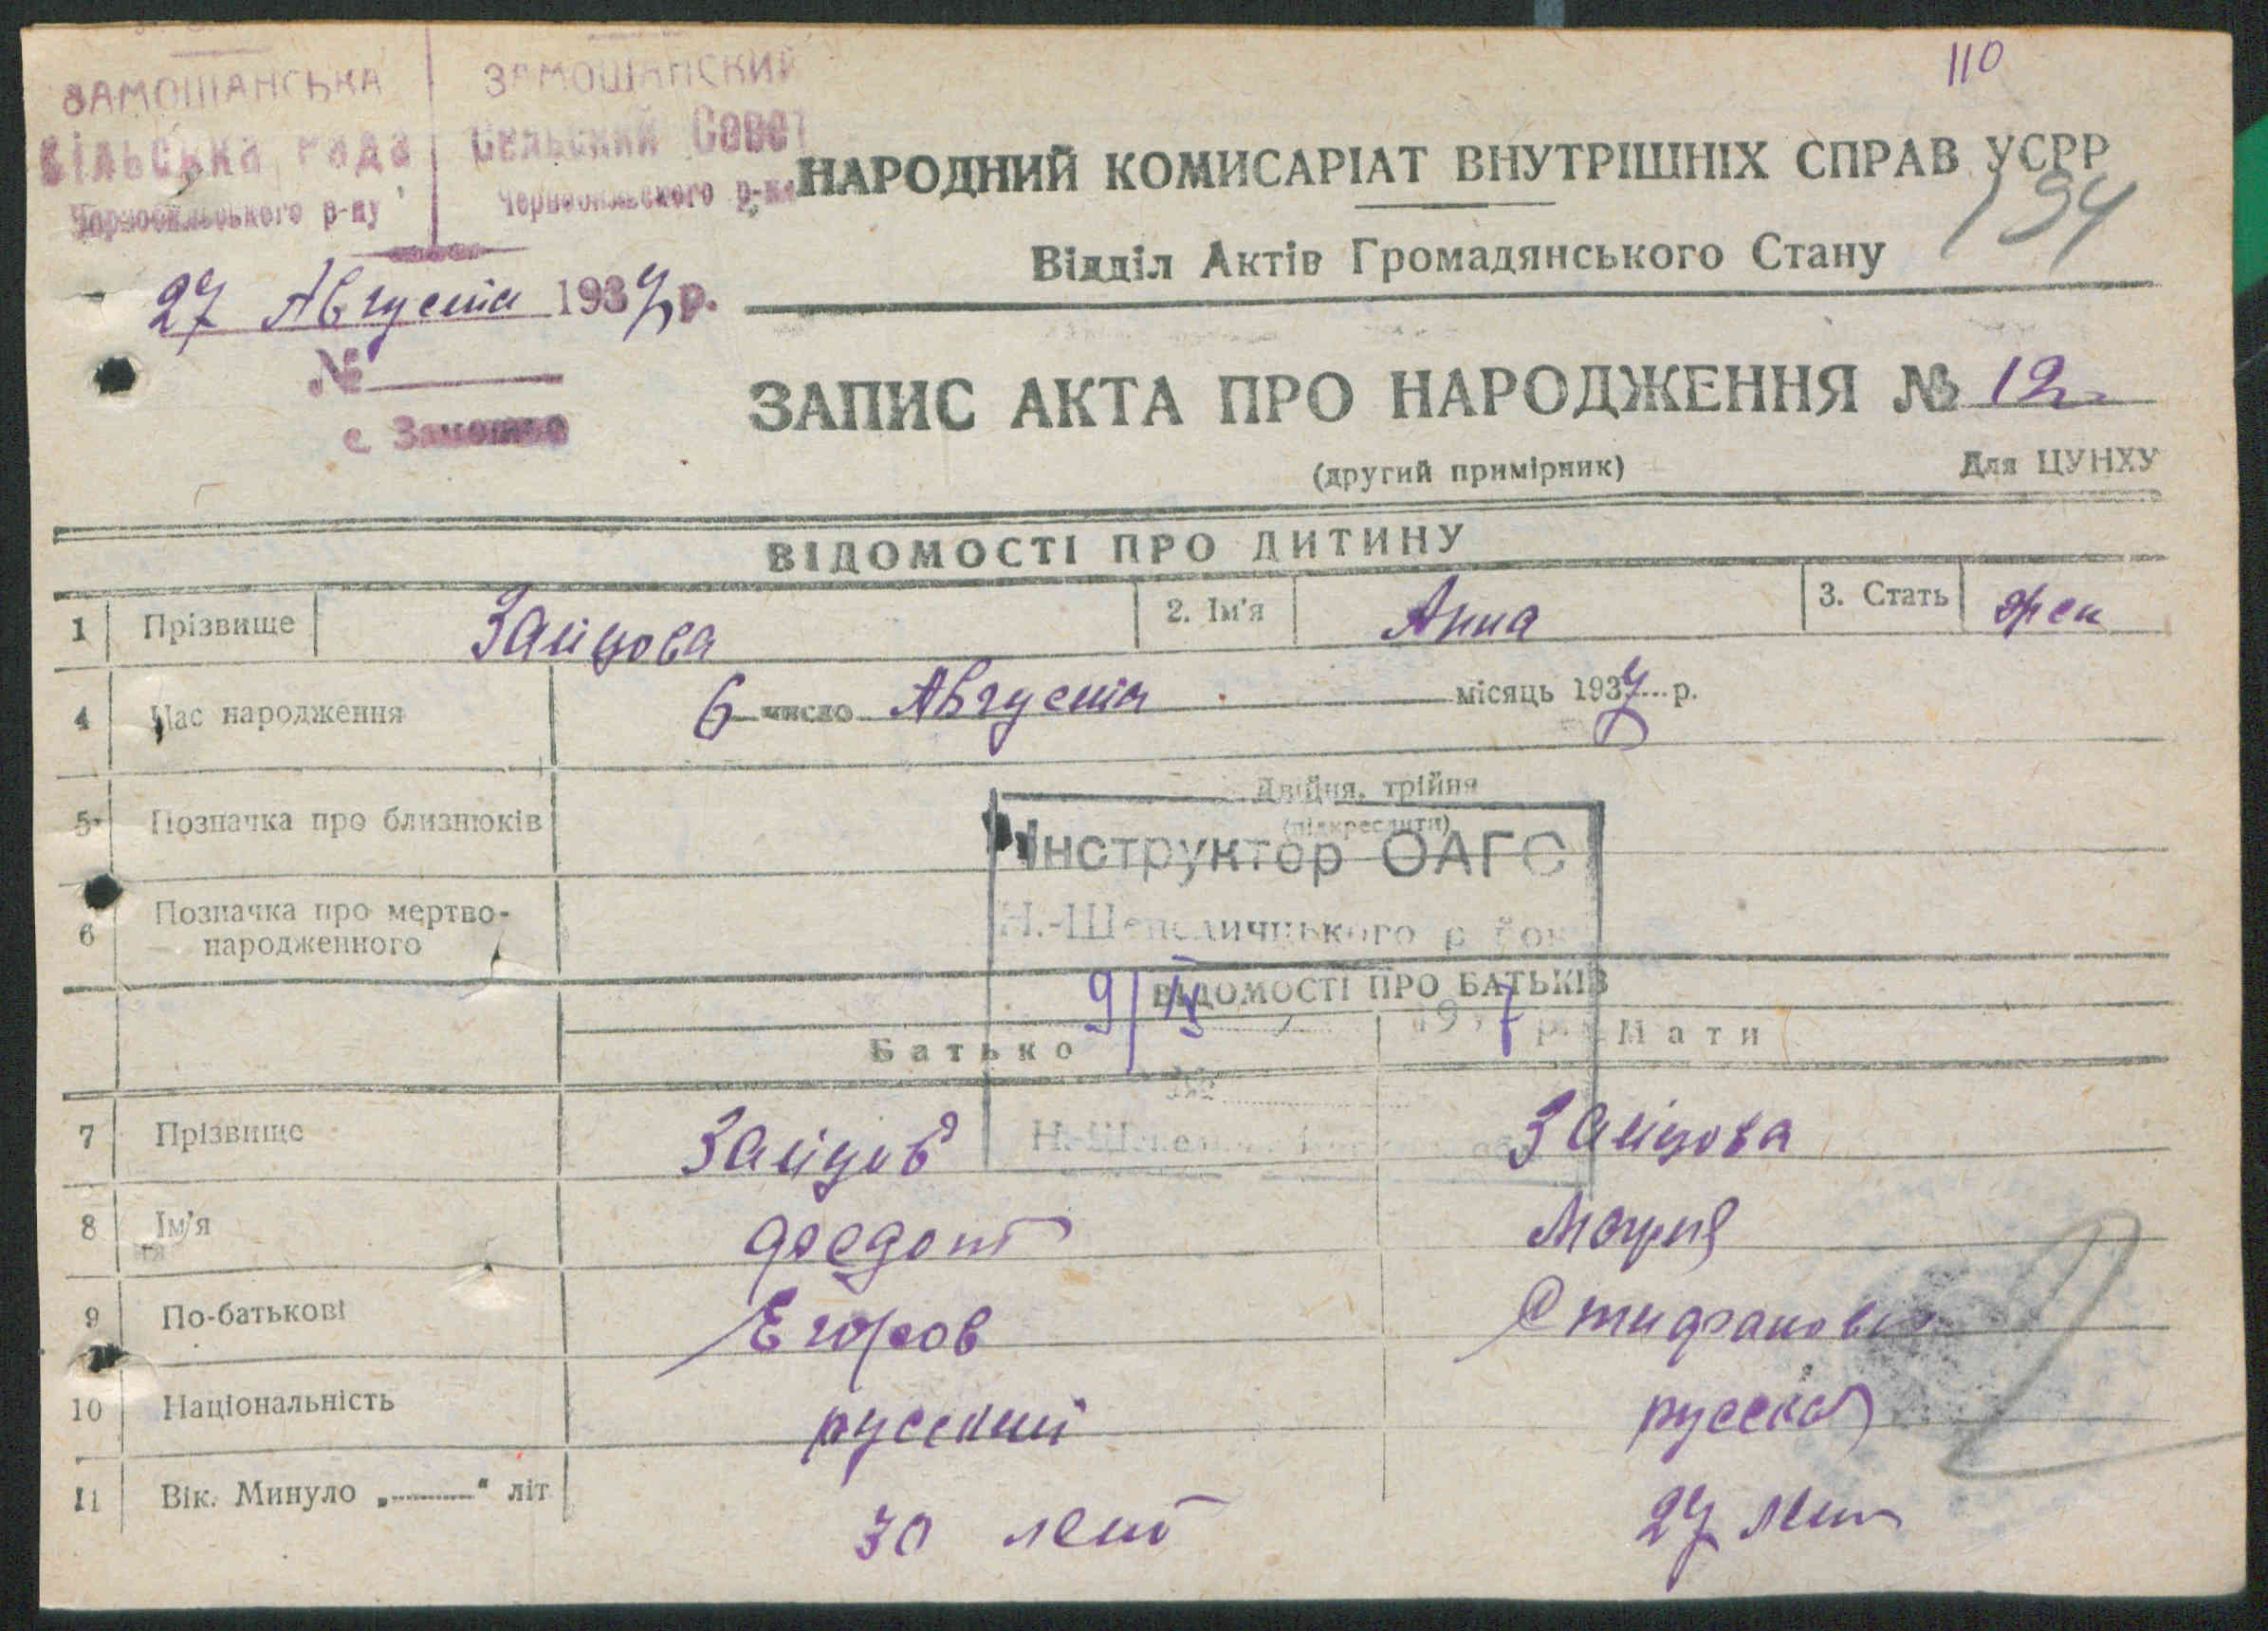 110
ЗАМОШАНСЬКА ЗАМОШАНСКИЙ
Сільська рада Сельский Совет
Чорнобильського р-ну Чернобильского р-на
27 Августа 1937 р.
№
с Замошня
НАРОДНИЙ КОМИСАРІАТ ВНУТРІШНІХ СПРАВ УСРР
194
Відділ Актів Громадянського Стану
ЗАПИС АКТА ПРО НАРОДЖЕННЯ № 12
(другий примірник) Для ЦУНХУ
ВІДОМОСТІ ПРО ДИТИНУ
1 Прізвище Зайцова 2. Ім'я Анна 3. Стать жен
4 Час народження 6 число Августа місяць 1937 р.
5 Позначка про близнюків Двійня, трійня
(підкреслити)
Інструктор ОАГС
6 Позначка про мертво-
народженного
Н.-Шепеличцького
ВІДОМОСТІ ПРО БАТЬКІВ
9/IX 1937 р.
Батько Мати
7 Прізвище Зайцов Зайцова
Н.-Шепе
8 Ім'я Федот Мария
9 По-батькові Егоров Стифановна
10 Національність русский русская
11 Вік. Минуло „ “ літ 30 лет 27 лет